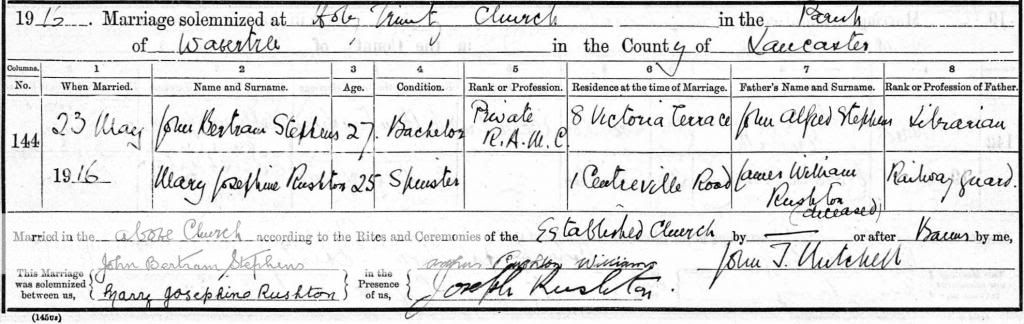 1916. Marriage solemnized at Holy Trinity Church in the Parish
of Wavertree in the County of Lancaster
Columns. 1 2 3 4 5 6 7 8
No. When Married. Name and Surname. Age. Condition. Rank or Profession. Residence at the time of Marriage. Father's Name and Surname. Rank or Profession of Father.
144 23 May John Bertram Stephens 27 Bachelor Private R.A.M.C. 8 Victoria Terrace John Alfred Stephens Librarian
1916 Mary Josephine Rushton 25 Spinster 1 Centreville Road James William Rushton (deceased) Railway guard.
Married in the above Church according to the Rites and Ceremonies of the Established Church by — or after Banns by me,
This Marriage was solemnized between us, { John Bertram Stephens in the Presence of us, { Rushton Williams John T. Mitchell
Mary Josephine Rushton } Joseph Rushton.
(145us)